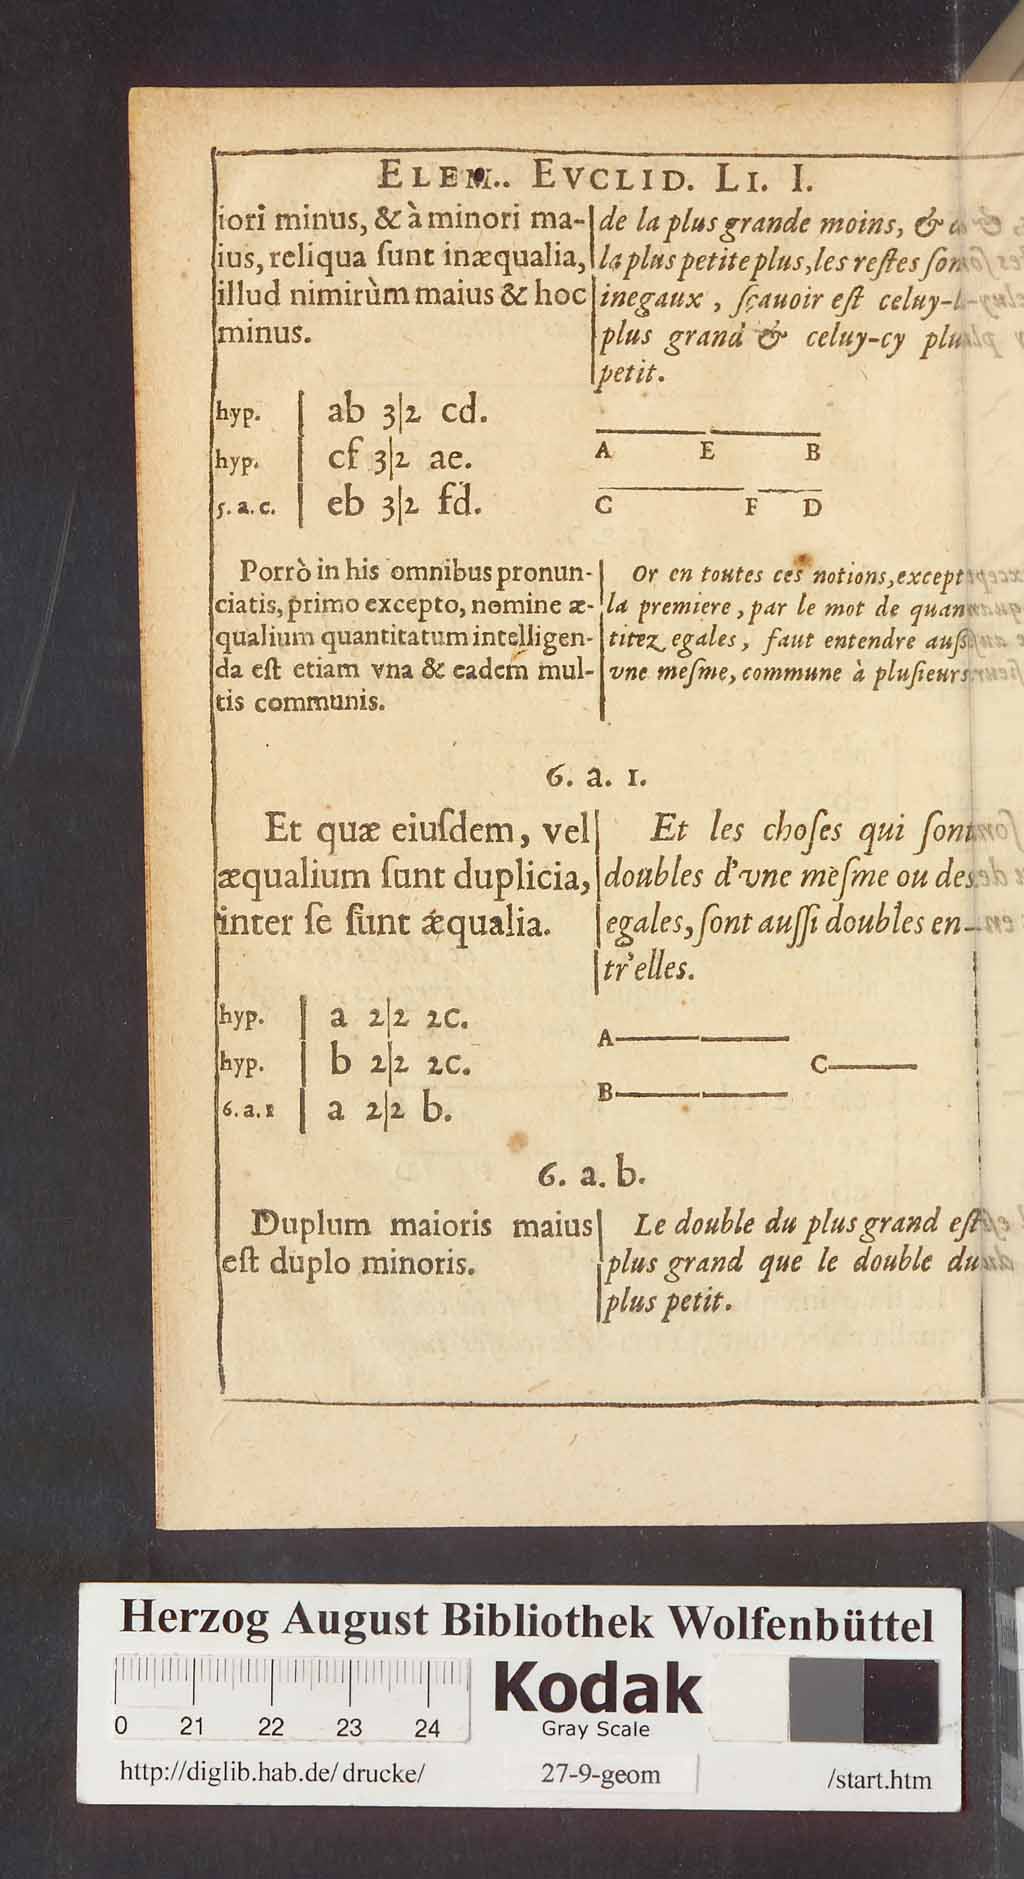 ELEM.. EVCLID. LI. I.
iori minus, & à minori ma-
ius, reliqua ſunt inæqualia,
illud nimirùm maius & hoc
minus.
de la plus grande moins, &
la plus petite plus, les reſtes
inegaux, ſçauoir eſt celuy-
plus grand & celuy-cy
petit.
hyp. | ab 3|2 cd.
hyp. | cf 3|2 ae.
5. a. c. | eb 3|2 fd.
A E B
C F D
Porrò in his omnibus pronun-
ciatis, primo excepto, nomine æ-
qualium quantitatum intelligen-
da eſt etiam vna & eadem mul-
tis communis.
Or en toutes ces notions, except
la premiere, par le mot de quan
titez egales, faut entendre
vne meſme, commune à pluſieurs
6. a. 1.
Et quæ eiuſdem, vel
æqualium ſunt duplicia,
inter ſe ſunt æqualia.
Et les choſes qui ſont
doubles d'vne meſme ou des
egales, ſont auſſi doubles en-
tr'elles.
hyp. | a 2|2 2c.
hyp. | b 2|2 2c.
6. a. 1 | a 2|2 b.
A
C
B
6. a. b.
Duplum maioris maius
eſt duplo minoris.
Le double du plus grand eſt
plus grand que le double du
plus petit.
Herzog August Bibliothek Wolfenbüttel
0 21 22 23 24
Kodak
Gray Scale
http://diglib.hab.de/drucke/ 27-9-geom /start.htm